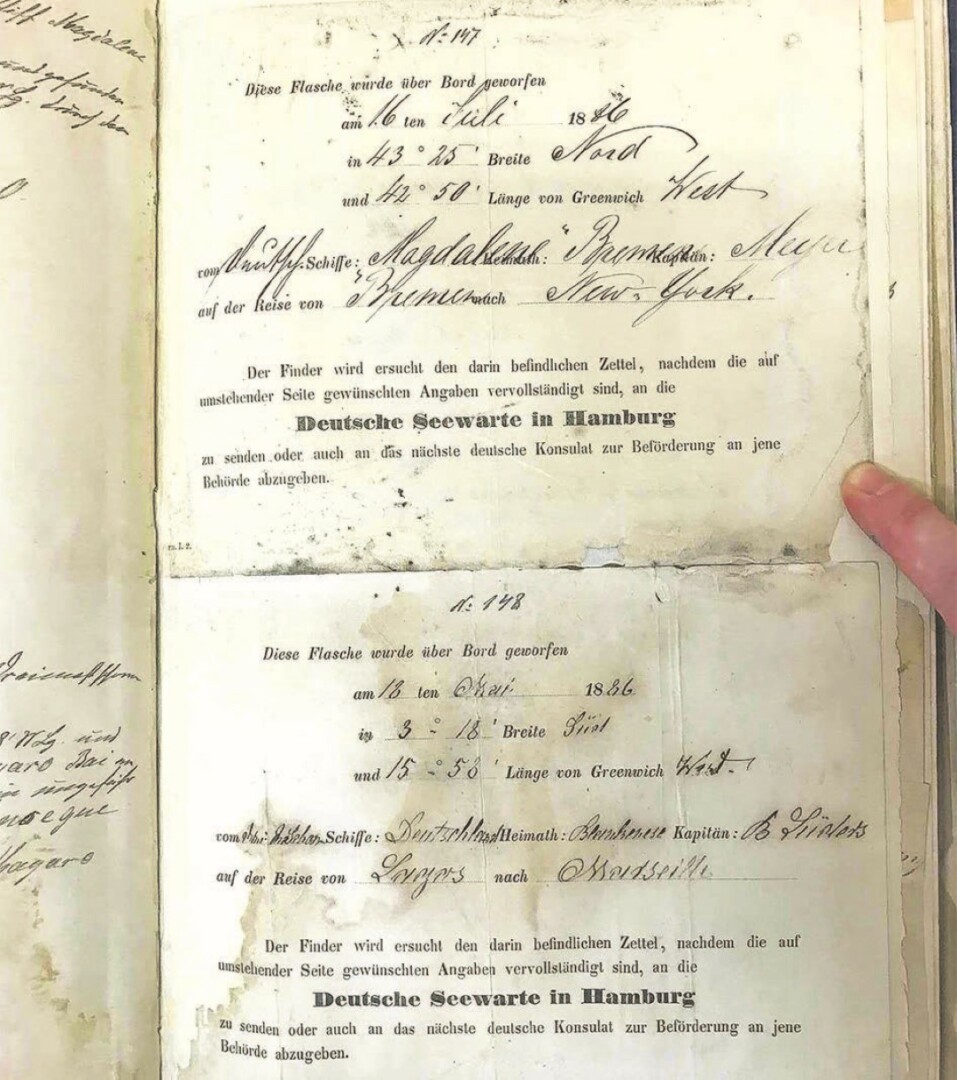 Schiff Magdalene
und gefunden
Lg. durch den
No 147
Diese Flasche wurde über Bord geworfen
am 16 ten Juli 1886
in 43° 25' Breite Nord
und 42° 50' Länge von Greenwich West
vom Deutsch. Schiffe: "Magdalene" Heimath: Bremen Kapitän: Meyer
auf der Reise von "Bremen nach New-York.
Der Finder wird ersucht den darin befindlichen Zettel, nachdem die auf
umstehender Seite gewünschten Angaben vervollständigt sind, an die
Deutsche Seewarte in Hamburg
zu senden oder auch an das nächste deutsche Konsulat zur Beförderung an jene
Behörde abzugeben.
No 148
Diese Flasche wurde über Bord geworfen
am 18 ten Mai 1886
in 3° 18' Breite Süd
und 15° 58' Länge von Greenwich West.
vom Schiffe: Deutschland Heimath: Blankenese Kapitän: B Lüders
auf der Reise von Lagos nach Marseille
Der Finder wird ersucht den darin befindlichen Zettel, nachdem die auf
umstehender Seite gewünschten Angaben vervollständigt sind, an die
Deutsche Seewarte in Hamburg
zu senden oder auch an das nächste deutsche Konsulat zur Beförderung an jene
Behörde abzugeben.